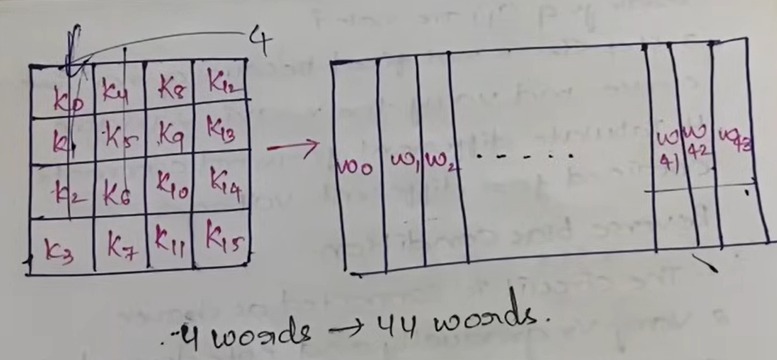 4
K0 K4 K8 K12
K1 K5 K9 K13
K2 K6 K10 K14
K3 K7 K11 K15
w0 w1 w2 ...... w41 w42 w43
4 words → 44 words.